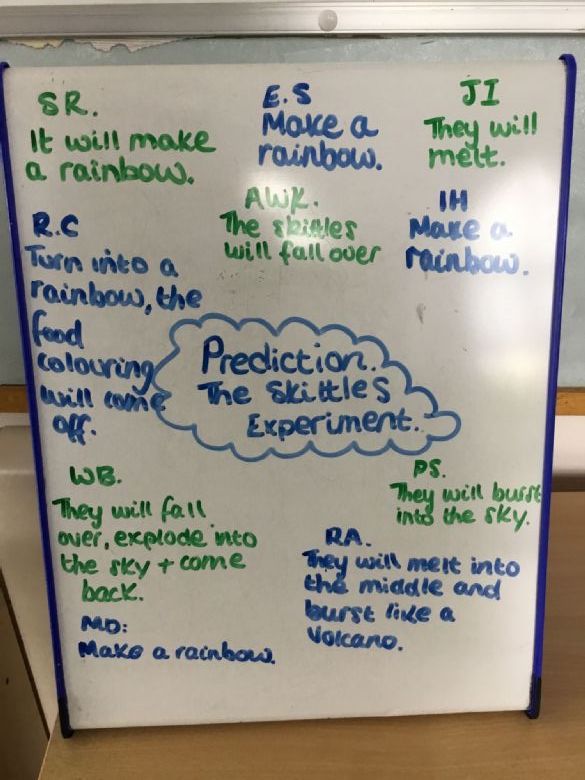 SR.
It will make
a rainbow.
E.S
Make a
rainbow.
JI
They will
melt.
AWK.
The skittles
will fall over
IH
Make a
rainbow.
R.C
Turn into a
rainbow, the
food
colouring
will come
off.
Prediction.
The Skittles
Experiment.
WB.
They will fall
over, explode into
the sky + come
back.
PS.
They will burst
into the sky.
RA.
They will melt into
the middle and
burst like a
Volcano.
MD:
Make a rainbow.